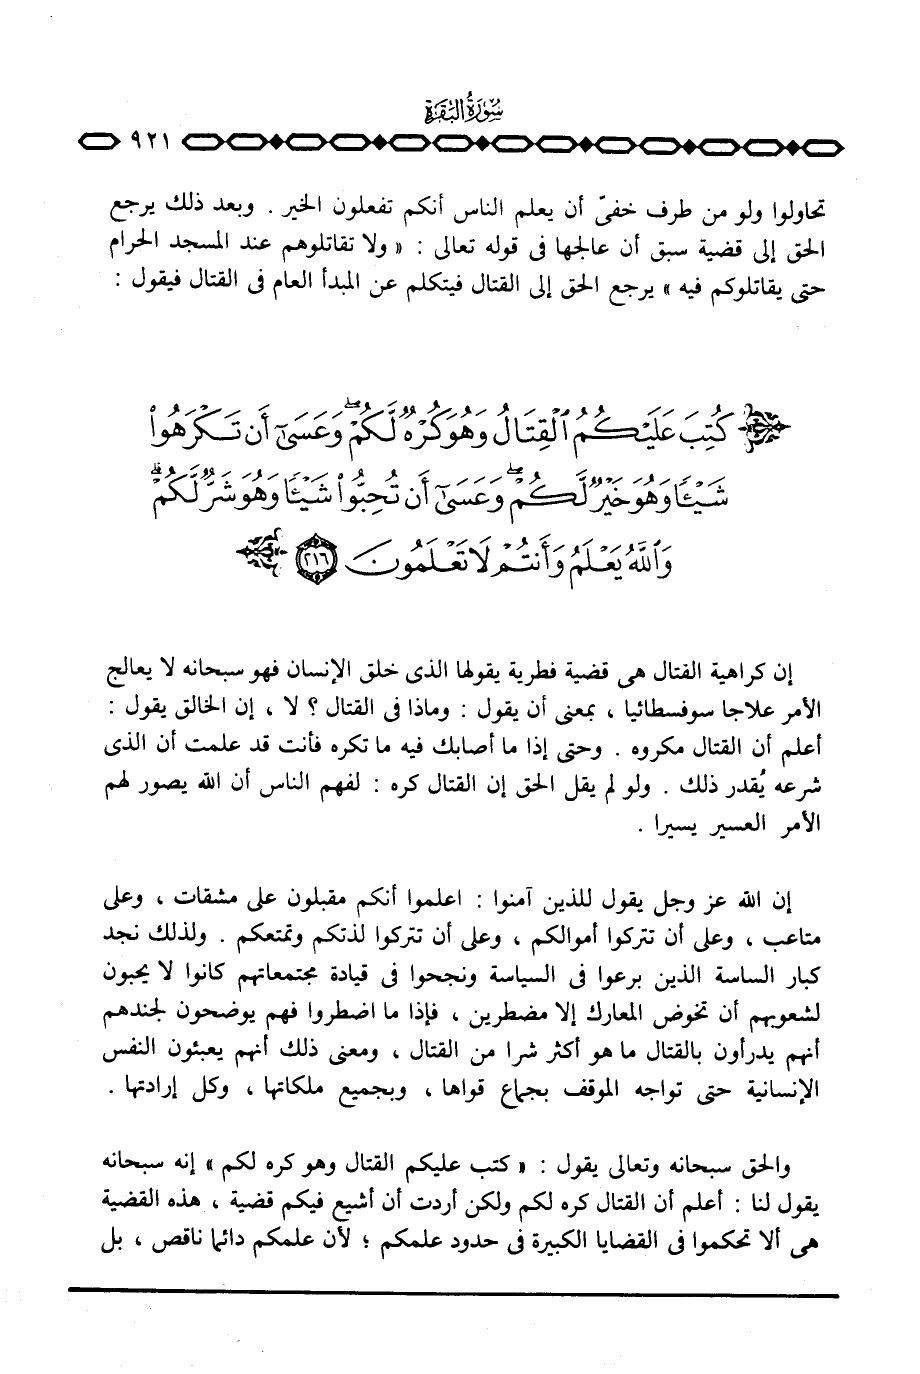 سورة البقرة
٩٢١
تحاولوا ولو من طرف خفىّ أن يعلم الناس أنكم تفعلون الخير . وبعد ذلك يرجع
الحق إلى قضية سبق أن عالجها فى قوله تعالى : « ولا تقاتلوهم عند المسجد الحرام
حتى يقاتلوكم فيه » يرجع الحق إلى القتال فيتكلم عن المبدأ العام فى القتال فيقول :
كُتِبَ عَلَيْكُمُ ٱلْقِتَالُ وَهُوَ كُرْهٌ لَّكُمْ ۖ وَعَسَىٰٓ أَن تَكْرَهُوا۟
شَيْـًٔا وَهُوَ خَيْرٌ لَّكُمْ ۖ وَعَسَىٰٓ أَن تُحِبُّوا۟ شَيْـًٔا وَهُوَ شَرٌّ لَّكُمْ ۗ
وَٱللَّهُ يَعْلَمُ وَأَنتُمْ لَا تَعْلَمُونَ ٢١٦
إن كراهية القتال هى قضية فطرية يقولها الذى خلق الإنسان فهو سبحانه لا يعالج
الأمر علاجا سوفسطائيا ، بمعنى أن يقول : وماذا فى القتال ؟ لا ، إن الخالق يقول :
أعلم أن القتال مكروه . وحتى إذا ما أصابك فيه ما تكره فأنت قد علمت أن الذى
شرعه يُقدر ذلك . ولو لم يقل الحق إن القتال كره : لفهم الناس أن الله يصور لهم
الأمر العسير يسيرا .
إن الله عز وجل يقول للذين آمنوا : اعلموا أنكم مقبلون على مشقات ، وعلى
متاعب ، وعلى أن تتركوا أموالكم ، وعلى أن تتركوا لذتكم وتمتعكم . ولذلك نجد
كبار الساسة الذين برعوا فى السياسة ونجحوا فى قيادة مجتمعاتهم كانوا لا يحبون
لشعوبهم أن تخوض المعارك إلا مضطرين ، فإذا ما اضطروا فهم يوضحون لجندهم
أنهم يدرأون بالقتال ما هو أكثر شرا من القتال ، ومعنى ذلك أنهم يعبئون النفس
الإنسانية حتى تواجه الموقف بجماع قواها ، وبجميع ملكاتها ، وكل إرادتها .
والحق سبحانه وتعالى يقول : « كتب عليكم القتال وهو كره لكم » إنه سبحانه
يقول لنا : أعلم أن القتال كره لكم ولكن أردت أن أشيع فيكم قضية ، هذه القضية
هى ألا تحكموا فى القضايا الكبيرة فى حدود علمكم ؛ لأن علمكم دائما ناقص ، بل